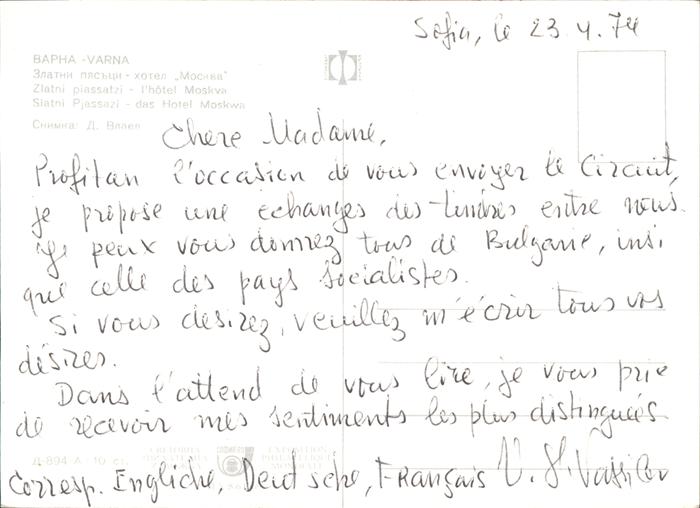 Sofia, le 23.4.74
ВАРНА -VARNA
Златни пясъци - хотел „Москва"
Zlatni piassatzi - l'hôtel Moskva
Slatni Pjassazi - das Hotel Moskwa
Снимка: Д. Влаев
Chere Madame,
Profitan l'occasion de vous envoyer le Circuit,
je propose une echanges des timbres entre nous.
Je peux vous donnez tous de Bulgarie, insi
que celle des pays socialistes.
Si vous desirez, veuillez m'écrir tous vos
désires.
Dans l'attend de vous lire, je vous prie
de recevoir mes sentiments les plus distingueés
Д-894-А 10 ст.
Corresp. Engliche, Deutsche, Français V. S. Vassilev